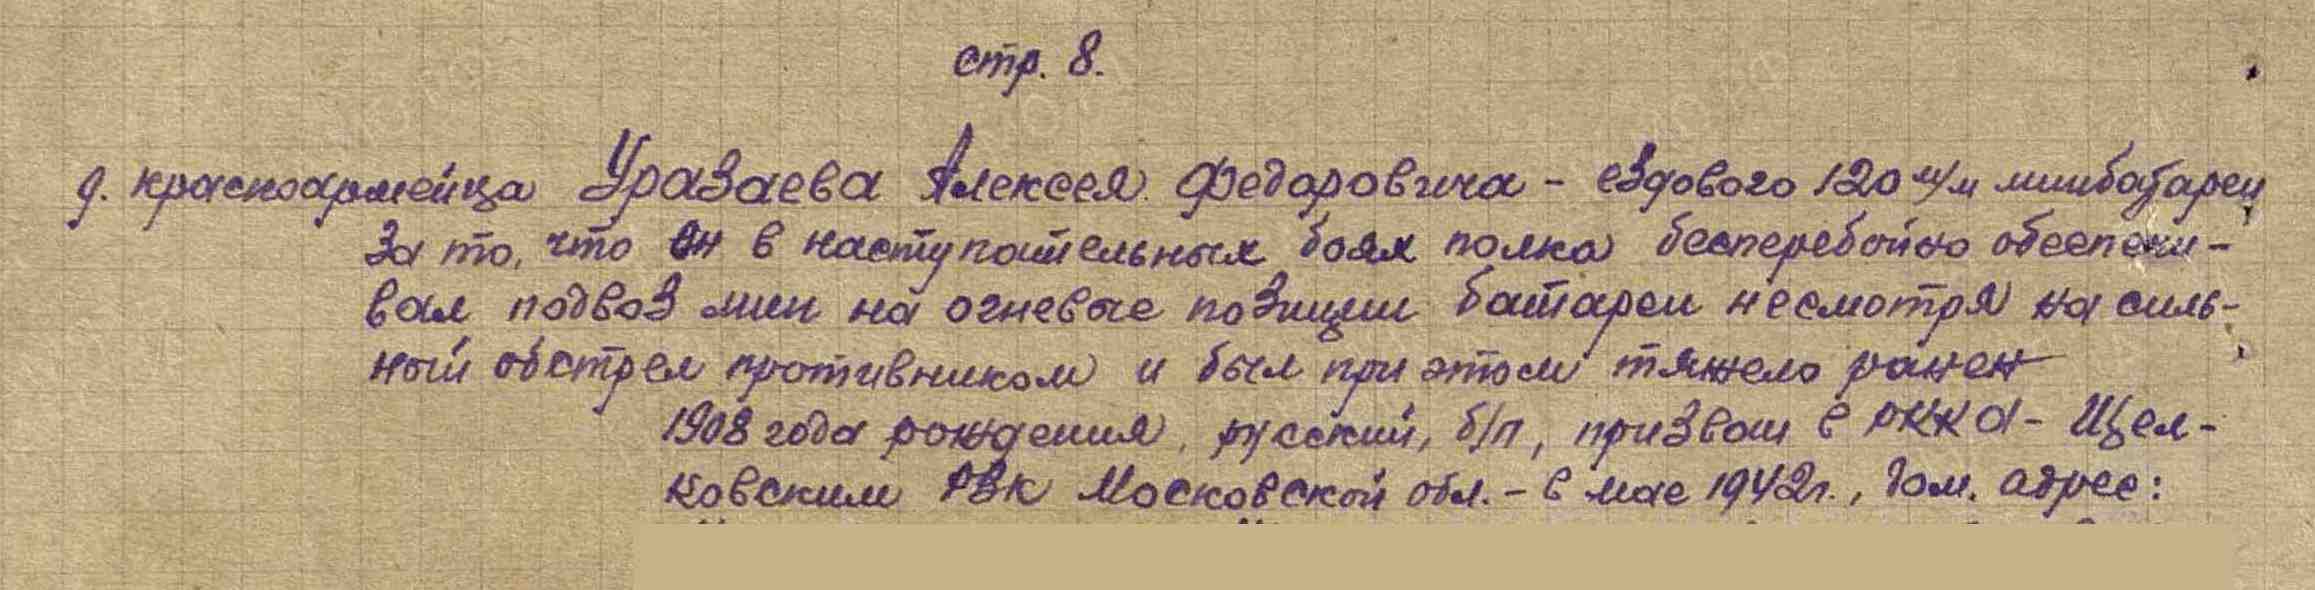 стр. 8.
9. красноармейца Уразаева Алексея Федоровича - ездового 120 м/м минбатареи
За то, что он в наступательных боях полка бесперебойно обеспечи-
вал подвоз мин на огневые позиции батареи несмотря на силь-
ный обстрел противником и был при этом тяжело ранен
1908 года рождения, русский, б/п, призван в РККА - Щел-
ковским РВК Московской обл. - в мае 1942г., Дом. адрес: